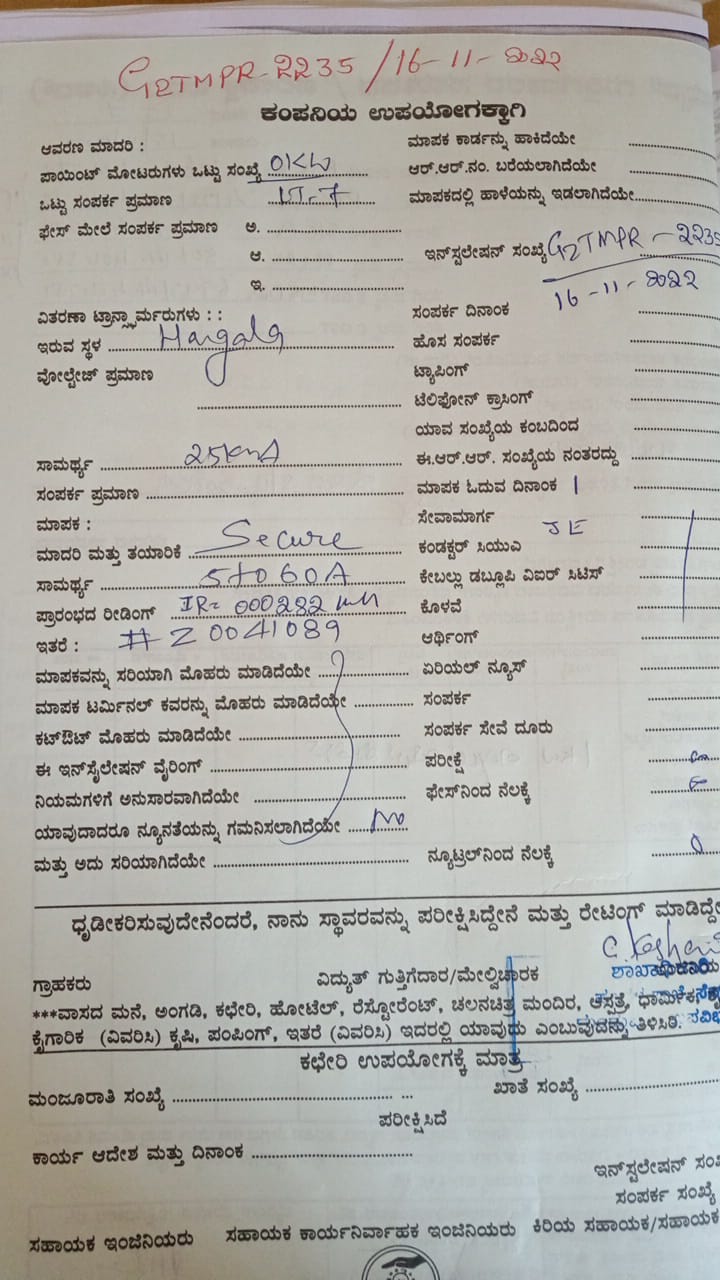 G2TMPR-2235 / 16-11-2022
ಕಂಪನಿಯ ಉಪಯೋಗಕ್ಕಾಗಿ
ಆವರಣ ಮಾದರಿ :
ಪಾಯಿಂಟ್ ಮೋಟರುಗಳು ಒಟ್ಟು ಸಂಖ್ಯೆ 0KW
ಒಟ್ಟು ಸಂಪರ್ಕ ಪ್ರಮಾಣ LT-7
ಫೇಸ್ ಮೇಲೆ ಸಂಪರ್ಕ ಪ್ರಮಾಣ ಅ. ....................
ಆ. ....................
ಇ. ....................
ವಿತರಣಾ ಟ್ರಾನ್ಸ್ಫಾರ್ಮರುಗಳು : :
ಇರುವ ಸ್ಥಳ Hangala
ವೋಲ್ಟೇಜ್ ಪ್ರಮಾಣ ....................
ಸಾಮರ್ಥ್ಯ 25KVA
ಸಂಪರ್ಕ ಪ್ರಮಾಣ ....................
ಮಾಪಕ :
ಮಾದರಿ ಮತ್ತು ತಯಾರಿಕೆ Secure
ಸಾಮರ್ಥ್ಯ 5to60A
ಪ್ರಾರಂಭದ ರೀಡಿಂಗ್ IR= 000282
ಇತರೆ : # Z 0041089
ಮಾಪಕವನ್ನು ಸರಿಯಾಗಿ ಮೊಹರು ಮಾಡಿದೆಯೇ ....................
ಮಾಪಕ ಟರ್ಮಿನಲ್ ಕವರನ್ನು ಮೊಹರು ಮಾಡಿದೆಯೇ ....................
ಕಟ್‌ಔಟ್ ಮೊಹರು ಮಾಡಿದೆಯೇ ....................
ಈ ಇನ್‌ಸೈಲೇಷನ್ ವೈರಿಂಗ್ ....................
ನಿಯಮಗಳಿಗೆ ಅನುಸಾರವಾಗಿದೆಯೇ ....................
ಯಾವುದಾದರೂ ನ್ಯೂನತೆಯನ್ನು ಗಮನಿಸಲಾಗಿದೆಯೇ No
ಮತ್ತು ಅದು ಸರಿಯಾಗಿದೆಯೇ ....................
ಮಾಪಕ ಕಾರ್ಡನ್ನು ಹಾಕಿದೆಯೇ ....................
ಆರ್.ಆರ್.ನಂ. ಬರೆಯಲಾಗಿದೆಯೇ ....................
ಮಾಪಕದಲ್ಲಿ ಹಾಳೆಯನ್ನು ಇಡಲಾಗಿದೆಯೇ ....................
ಇನ್‌ಸ್ಟಲೇಷನ್ ಸಂಖ್ಯೆ G2TMPR-2235
16-11-2022
ಸಂಪರ್ಕ ದಿನಾಂಕ
ಹೊಸ ಸಂಪರ್ಕ ....................
ಟ್ಯಾಪಿಂಗ್ ....................
ಟೆಲಿಫೋನ್ ಕ್ರಾಸಿಂಗ್ ....................
ಯಾವ ಸಂಖ್ಯೆಯ ಕಂಬದಿಂದ ....................
ಈ.ಆರ್.ಆರ್. ಸಂಖ್ಯೆಯ ನಂತರದ್ದು ....................
ಮಾಪಕ ಓದುವ ದಿನಾಂಕ 1
ಸೇವಾಮಾರ್ಗ JE
ಕಂಡಕ್ಟರ್ ಸಿಯುವಿ ....................
ಕೇಬಲ್ಲು ಡಬ್ಲೂಪಿ ವಿಐರ್ ಸಿಟಿಸ್ ....................
ಕೊಳವೆ ....................
ಆರ್ಥಿಂಗ್ ....................
ಏರಿಯಲ್ ನ್ಯೂಸ್ ....................
ಸಂಪರ್ಕ ....................
ಸಂಪರ್ಕ ಸೇವೆ ದೂರು ....................
ಪರೀಕ್ಷೆ
ಫೇಸ್‌ನಿಂದ ನೆಲಕ್ಕೆ
ನ್ಯೂಟ್ರಲ್‌ನಿಂದ ನೆಲಕ್ಕೆ
ಧೃಡೀಕರಿಸುವುದೇನೆಂದರೆ, ನಾನು ಸ್ಥಾವರವನ್ನು ಪರೀಕ್ಷಿಸಿದ್ದೇನೆ ಮತ್ತು ರೇಟಿಂಗ್ ಮಾಡಿದ್ದೇ
ಗ್ರಾಹಕರು ವಿದ್ಯುತ್ ಗುತ್ತಿಗೆದಾರ/ಮೇಲ್ವಿಚಾರಕ
***ವಾಸದ ಮನೆ, ಅಂಗಡಿ, ಕಛೇರಿ, ಹೋಟೆಲ್, ರೆಸ್ಟೋರೆಂಟ್, ಚಲನಚಿತ್ರ ಮಂದಿರ, ಆಸ್ಪತ್ರೆ, ಧಾರ್ಮಿಕ
ಕೈಗಾರಿಕ (ವಿವರಿಸಿ) ಕೃಷಿ, ಪಂಪಿಂಗ್, ಇತರೆ (ವಿವರಿಸಿ) ಇದರಲ್ಲಿ ಯಾವುದು ಎಂಬುವುದನ್ನು ತಿಳಿಸಿರಿ.
ಕಛೇರಿ ಉಪಯೋಗಕ್ಕೆ ಮಾತ್ರ
ಮಂಜೂರಾತಿ ಸಂಖ್ಯೆ .................... ಖಾತೆ ಸಂಖ್ಯೆ ....................
ಪರೀಕ್ಷಿಸಿದೆ
ಕಾರ್ಯ ಆದೇಶ ಮತ್ತು ದಿನಾಂಕ ....................
ಇನ್‌ಸ್ಟಲೇಷನ್
ಸಂಪರ್ಕ ಸಂಖ್ಯೆ
ಸಹಾಯಕ ಇಂಜಿನಿಯರು ಸಹಾಯಕ ಕಾರ್ಯನಿರ್ವಾಹಕ ಇಂಜಿನಿಯರು ಕಿರಿಯ ಸಹಾಯಕ/ಸಹಾಯಕ